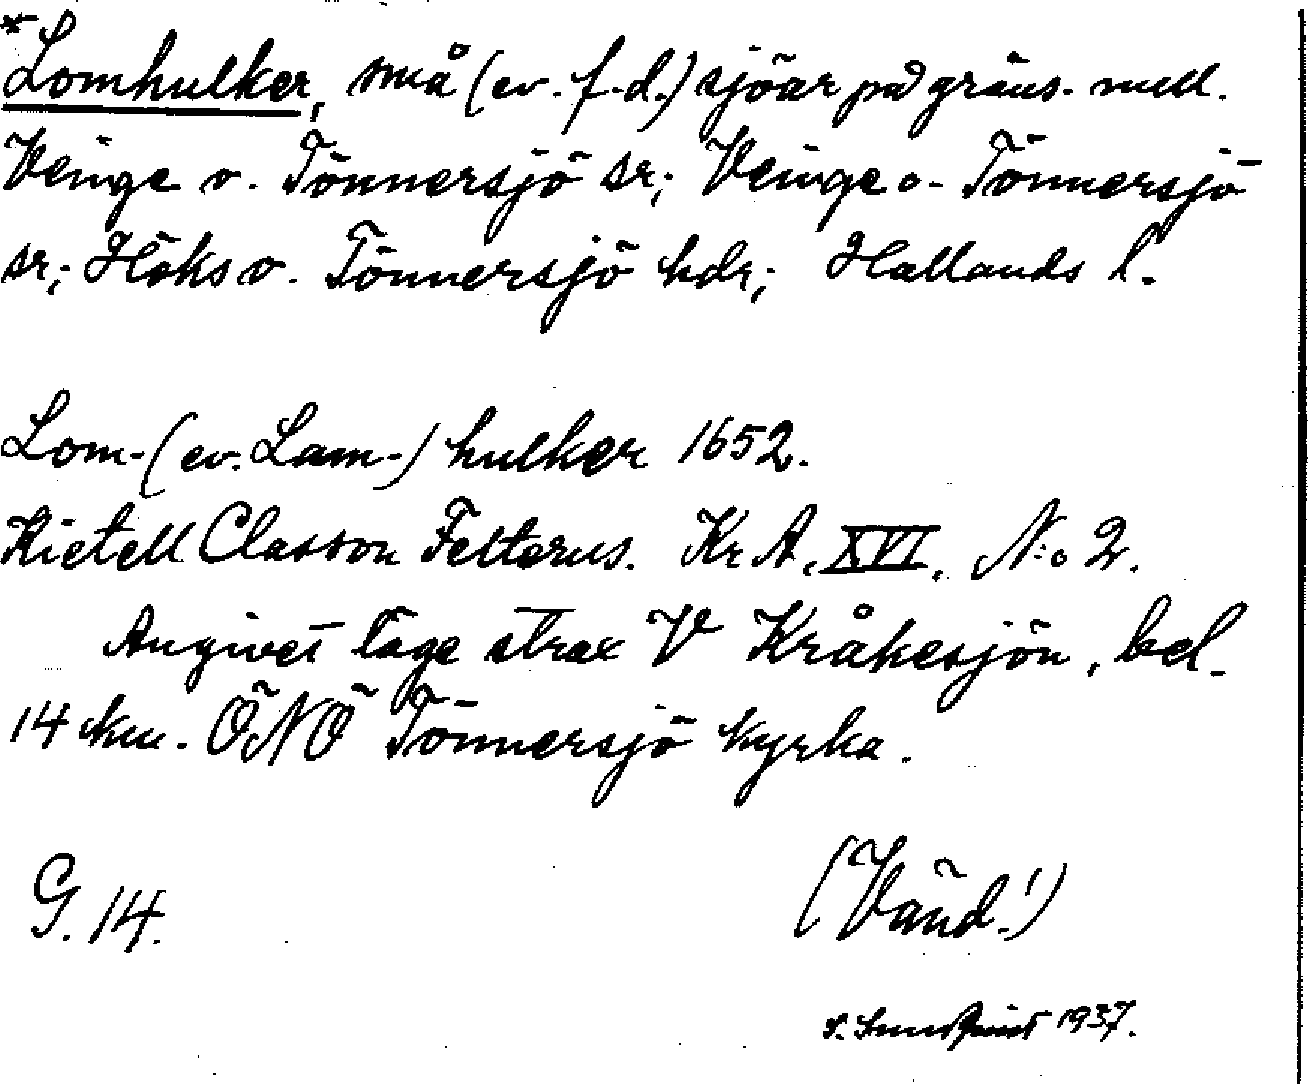 *Lomhulker, små (ev. f.d.) sjöar på gräns. mell.
Veinge o. Tönnersjö sr; Veinge o. Tönnersjö
sr; Höks o. Tönnersjö hdr; Hallands l.
Lom- (ev. Lam-) hulker 1652.
Kietell Classon Felterus. Kr A, XVI, N:o 2.
Angivet läge strax V Kråkesjön, bel.
14 km. ÖNÖ Tönnersjö kyrka.
G. 14.
(Vänd!)
S. Sundquist 1937.